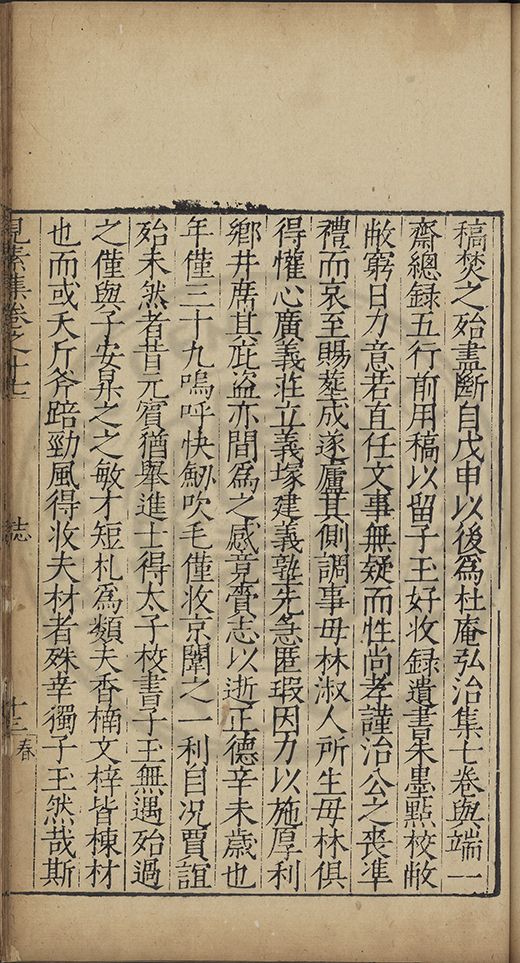 稿焚之殆盡斷自戊申以後爲杜庵弘治集七卷與端一
齋總録五行前用稿以留子玉好收録遺書朱墨點校敝
敝窮日力意若直任文事無疑而性尚孝謹治公之喪準
禮而哀至賜塟成遂廬其側調事母林淑人所生母林俱
得懽心廣義莊立義塚建義塾先急匿瑕因力以施厚利
鄉井席其庇盜亦間爲之感竟賫志以逝正德辛未歲也
年僅三十九嗚呼快觘吹毛僅收京闈之一利自况賈誼
殆未然者昔元賓猶舉進士得太子校書子玉無遇殆過
之僅與子安㬅之之敏才短札爲類夫香楠文梓皆棟材
也而或夭斤斧踣勁風得收夫材者殊幸獨子玉然哉斯
見素集卷之十七
誌
十三
春